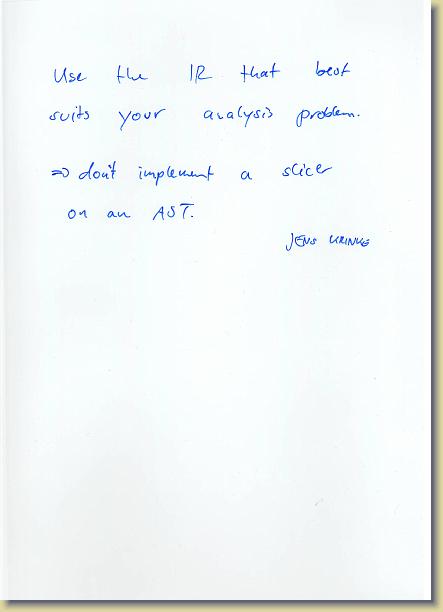 Use the IR that best
suits your analysis problem.
=> don't implement a slicer
on an AST.
JENS KRINKE